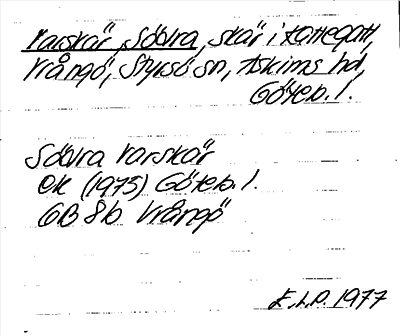 Varskär, Södra, skär i Kattegatt,
Vrångö, Styrsö sn, Askims hd,
Göteb. l.
Södra Varskär
EK (1975) Göteb. l.
GB 8b Vrångö
E.L.P. 1977